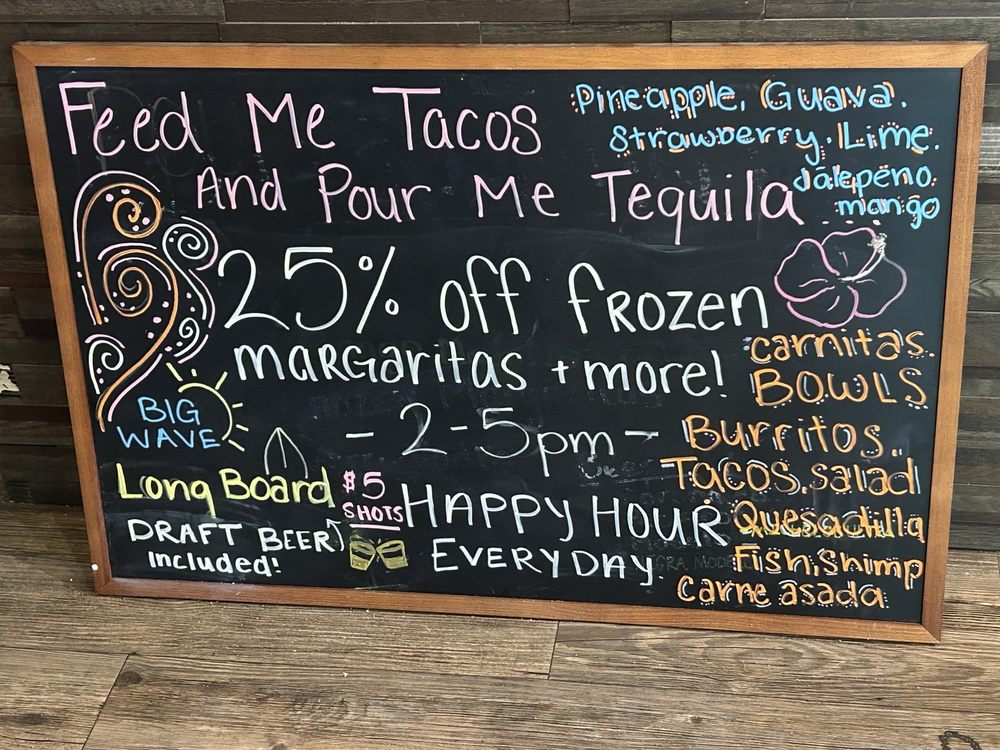 Feed Me Tacos
And Pour Me Tequila
Pineapple, Guava.
Strawberry. Lime.
Jalepeño.
mango
25% off frozen
margaritas + more!
- 2-5pm -
HAPPY HOUR
EVERYDAY
BIG
WAVE
Long Board
DRAFT BEER
Included!
$5
SHOTS
carnitas.
BOWLS
Burritos.
Tacos. salad
Quesadilla
Fish, Shimp
Carne asada